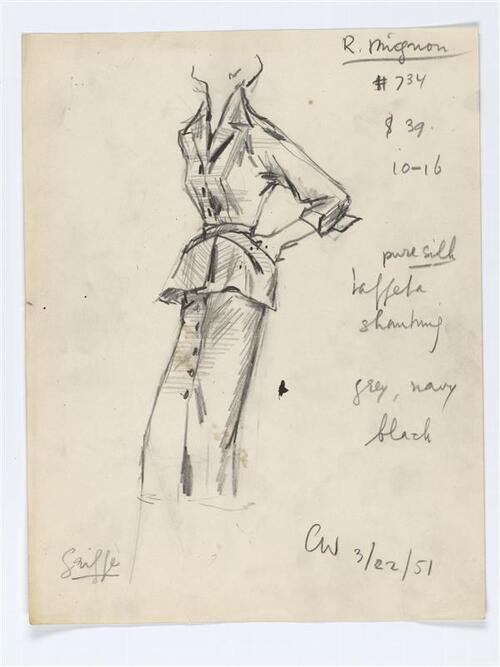 R. Mignon
# 734
$ 39.
10-16
pure silk
taffeta
shantung
grey, navy
black
CW 3/22/51
Griffe